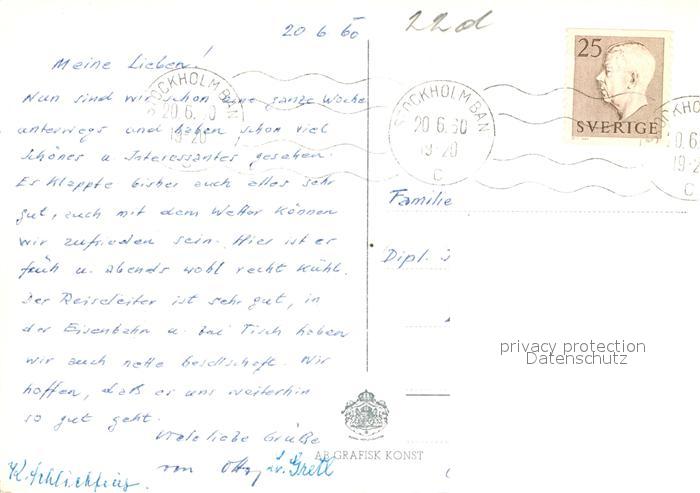 20 6 60
22d
Meine Lieben!
Nun sind wir schon eine ganze Woche
unterwegs und haben schon viel
Schönes u. Interessantes gesehen.
Es klappte bisher auch alles sehr
gut, auch mit dem Wetter können
wir zufrieden sein. Hier ist es
früh u. abends wohl recht kühl.
Der Reiseleiter ist sehr gut, in
der Eisenbahn u. bei Tisch haben
wir auch nette Gesellschaft. Wir
hoffen, daß es uns weiterhin
so gut geht.
Viele liebe Grüße
von Otto u. Gretl
K. Schlichting.
STOCKHOLM BAN
20.6.60
19-20
STOCKHOLM BAN
20 6.60
19-20
C
25
SVERIGE
STOCKHO
20.6
19-2
C
Familie
Dipl.
privacy protection
Datenschutz
AB GRAFISK KONST